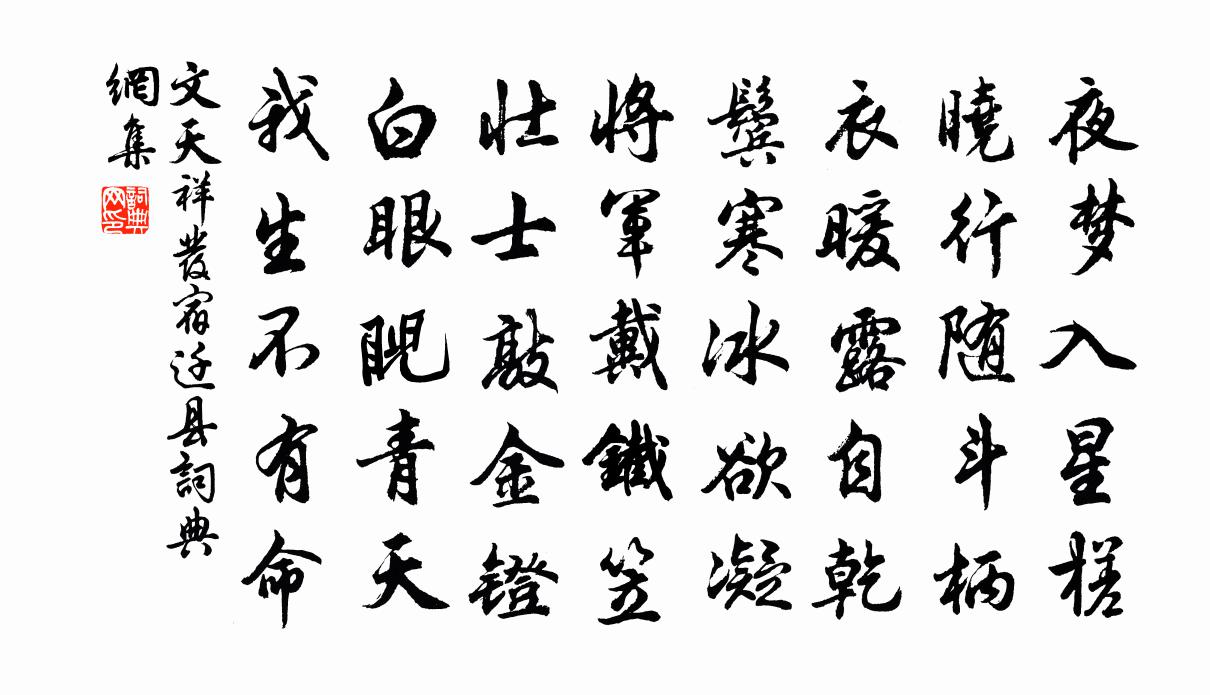 夜梦入星槎
曉行随斗柄
衣暖露自乾
鬓寒冰欲凝
将軍戴鐵笠
壮士敲金镫
白眼睨青天
我生不有命
文天祥發宿迁县詞典
網集
詞典网印